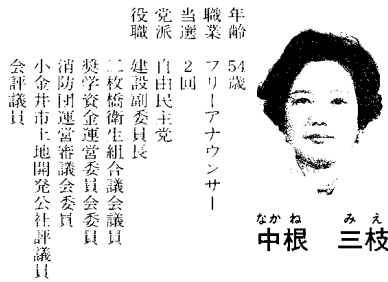 年齢　54歳
職業　フリーアナウンサー
当選　2回
党派　自由民主党
役職　建設副委員長
二枚橋衛生組合議会議員
奨学資金運営委員会委員
消防団運営審議会委員
小金井市土地開発公社評議員
会評議員
なかね　みえ
中根　三枝